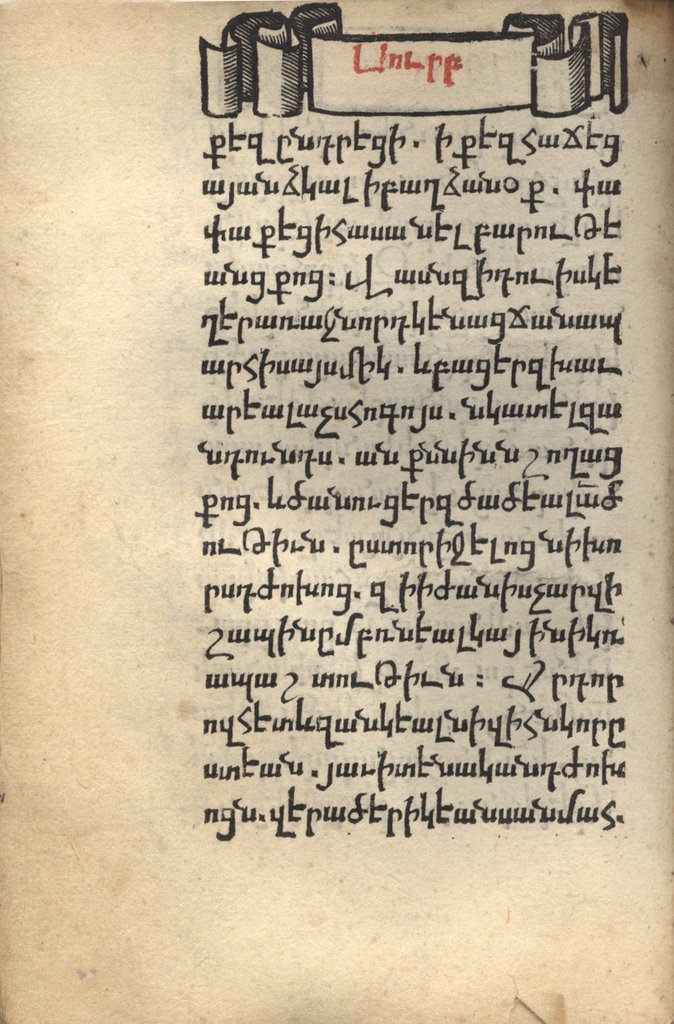 Սուրբ
քեզ ընդրեցի. ի քեզ հաճեց
այ անձկալի բաղձանօք. փա
փաքեցի հասանել բարութե
անց քոց: Վասն զի դու իսկ է
ղեր առաջնորդ կենաց ճանապ
արհիս այսմիկ. և բացեր զխաւ
արեալ աչս հոգոյս. նկատել զա
նդունդս. անքննին նշողաց
քոց. և ծանուցեր զծածեալ մած
ութիւն. ըստորիջելոցն ի խո
րս դժոխոց. զի ի ժանիս չար վի
շապին ըմբռնեալ կային ի կռ
ապաշտութիւն: Որ դոր
ովհետև զանկեալն ի վիհն կորը
ստեան. յաւիտենական դժոխ
ոցն. վերածեր ի կեանս ան մահ.